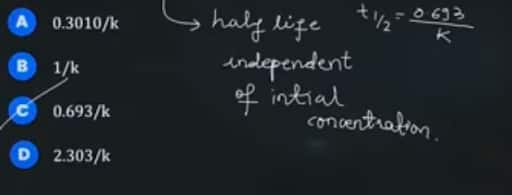 A 0.3010/k
B 1/k
C 0.693/k
D 2.303/k
→ half life t1/2 = 0.693/K
independent
of intial
concentration.